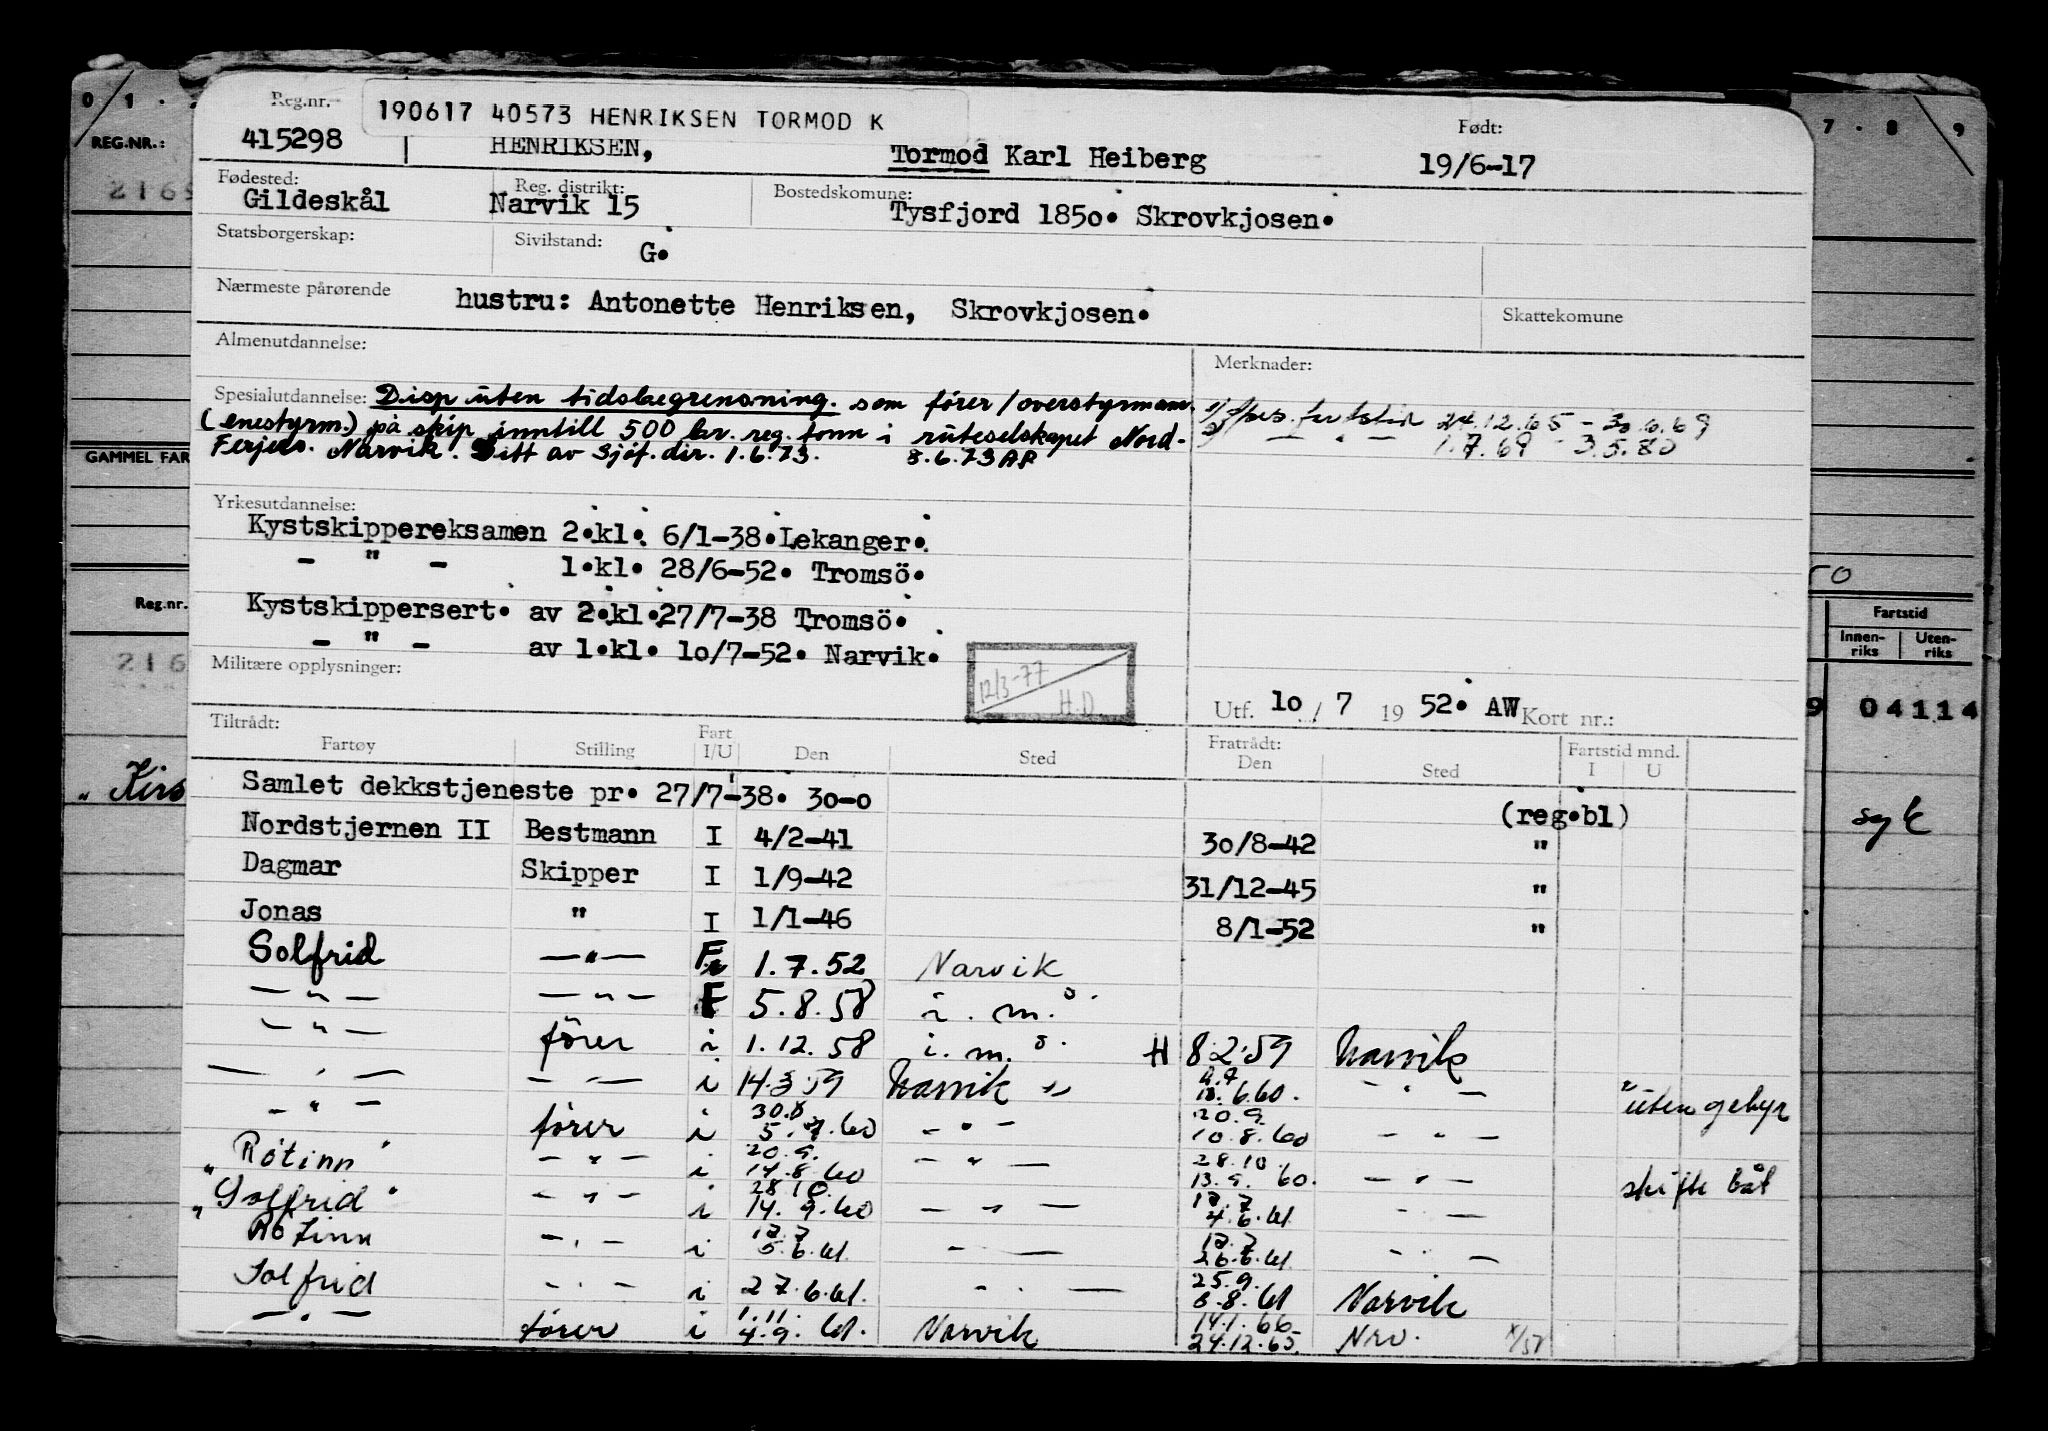 190617 40573 HENRIKSEN TORMOD K
Reg.nr. Født:
415298 HENRIKSEN, Tormod Karl Heiberg 19/6-17
Fødested: Reg. distrikt: Bostedskomune:
Gildeskål Narvik 15 Tysfjord 1850. Skrovkjosen.
Statsborgerskap: Sivilstand: G.
Nærmeste pårørende hustru: Antonette Henriksen, Skrovkjosen. Skattekomune
Almenutdannelse: Merknader:
Spesialutdannelse: Disp uten tidsbegrensning. som fører/overstyrmann. 1) fartstid 24.12.65 - 30.6.69
(enestyrm.) på skip inntill 500 br. reg. tonn i ruteselskapet Nord- 2) — " — 1.7.69 - 3.5.80
Ferjers. Narvik. Ditt av Sjöf. dir. 1.6.73. 8.6.73 AP
Yrkesutdannelse:
Kystskippereksamen 2.kl. 6/1-38.Lekanger.
- " - 1.kl. 28/6-52. Tromsö.
Kystskippersert. av 2.kl.27/7-38 Tromsö.
- " - av 1.kl. 10/7-52. Narvik.
Militære opplysninger: 12/3-77 H.D.
Utf. 10 / 7 19 52. AW Kort nr.:
Tiltrådt: Fart Fratrådt: Fartstid mnd.
Fartøy Stilling I/U Den Sted Den Sted I U
Samlet dekkstjeneste pr. 27/7-38. 30-0 (reg.bl)
Nordstjernen II Bestmann I 4/2-41 30/8-42 "
Dagmar Skipper I 1/9-42 31/12-45 "
Jonas " I 1/1-46 8/1-52 "
Solfrid — " — 1.7.52 Narvik
— " — — " — F 5.8.58 i. m.o.
— " — förer i 1.12.58 i. m.o. H 8.2.59 Narvik
— " — — " — i 14.3.59 Narvik 6.60. — " — "uten gebyr
30.8 20.9.
— " — förer i 5.7.60 — " — 10.8.60 — " —
20.9. 28.10.
"Rötinn" — " — i 14.8.60 — " — 13.9.60. — " — skifte båt
28.10. 12.7
"Solfrid" — " — i 14.9.60 — " — 4.6.61 — " —
12.7 12.7
Rötinn — " — i 5.6.61. — " — 26.6.61 — " —
25.9.
Solfrid — " — i 27.6.61. — " — 8.61 Narvik
1.11. 14.1.66
— " — förer i 4.9.61. Narvik 24.12.65. Nrv.
REG.NR.:
GAMMEL FAR
Reg.nr.
216
"Kirs
7 . 8 . 9
Fartstid
Innen-riks Uten-riks
9 04114
syk